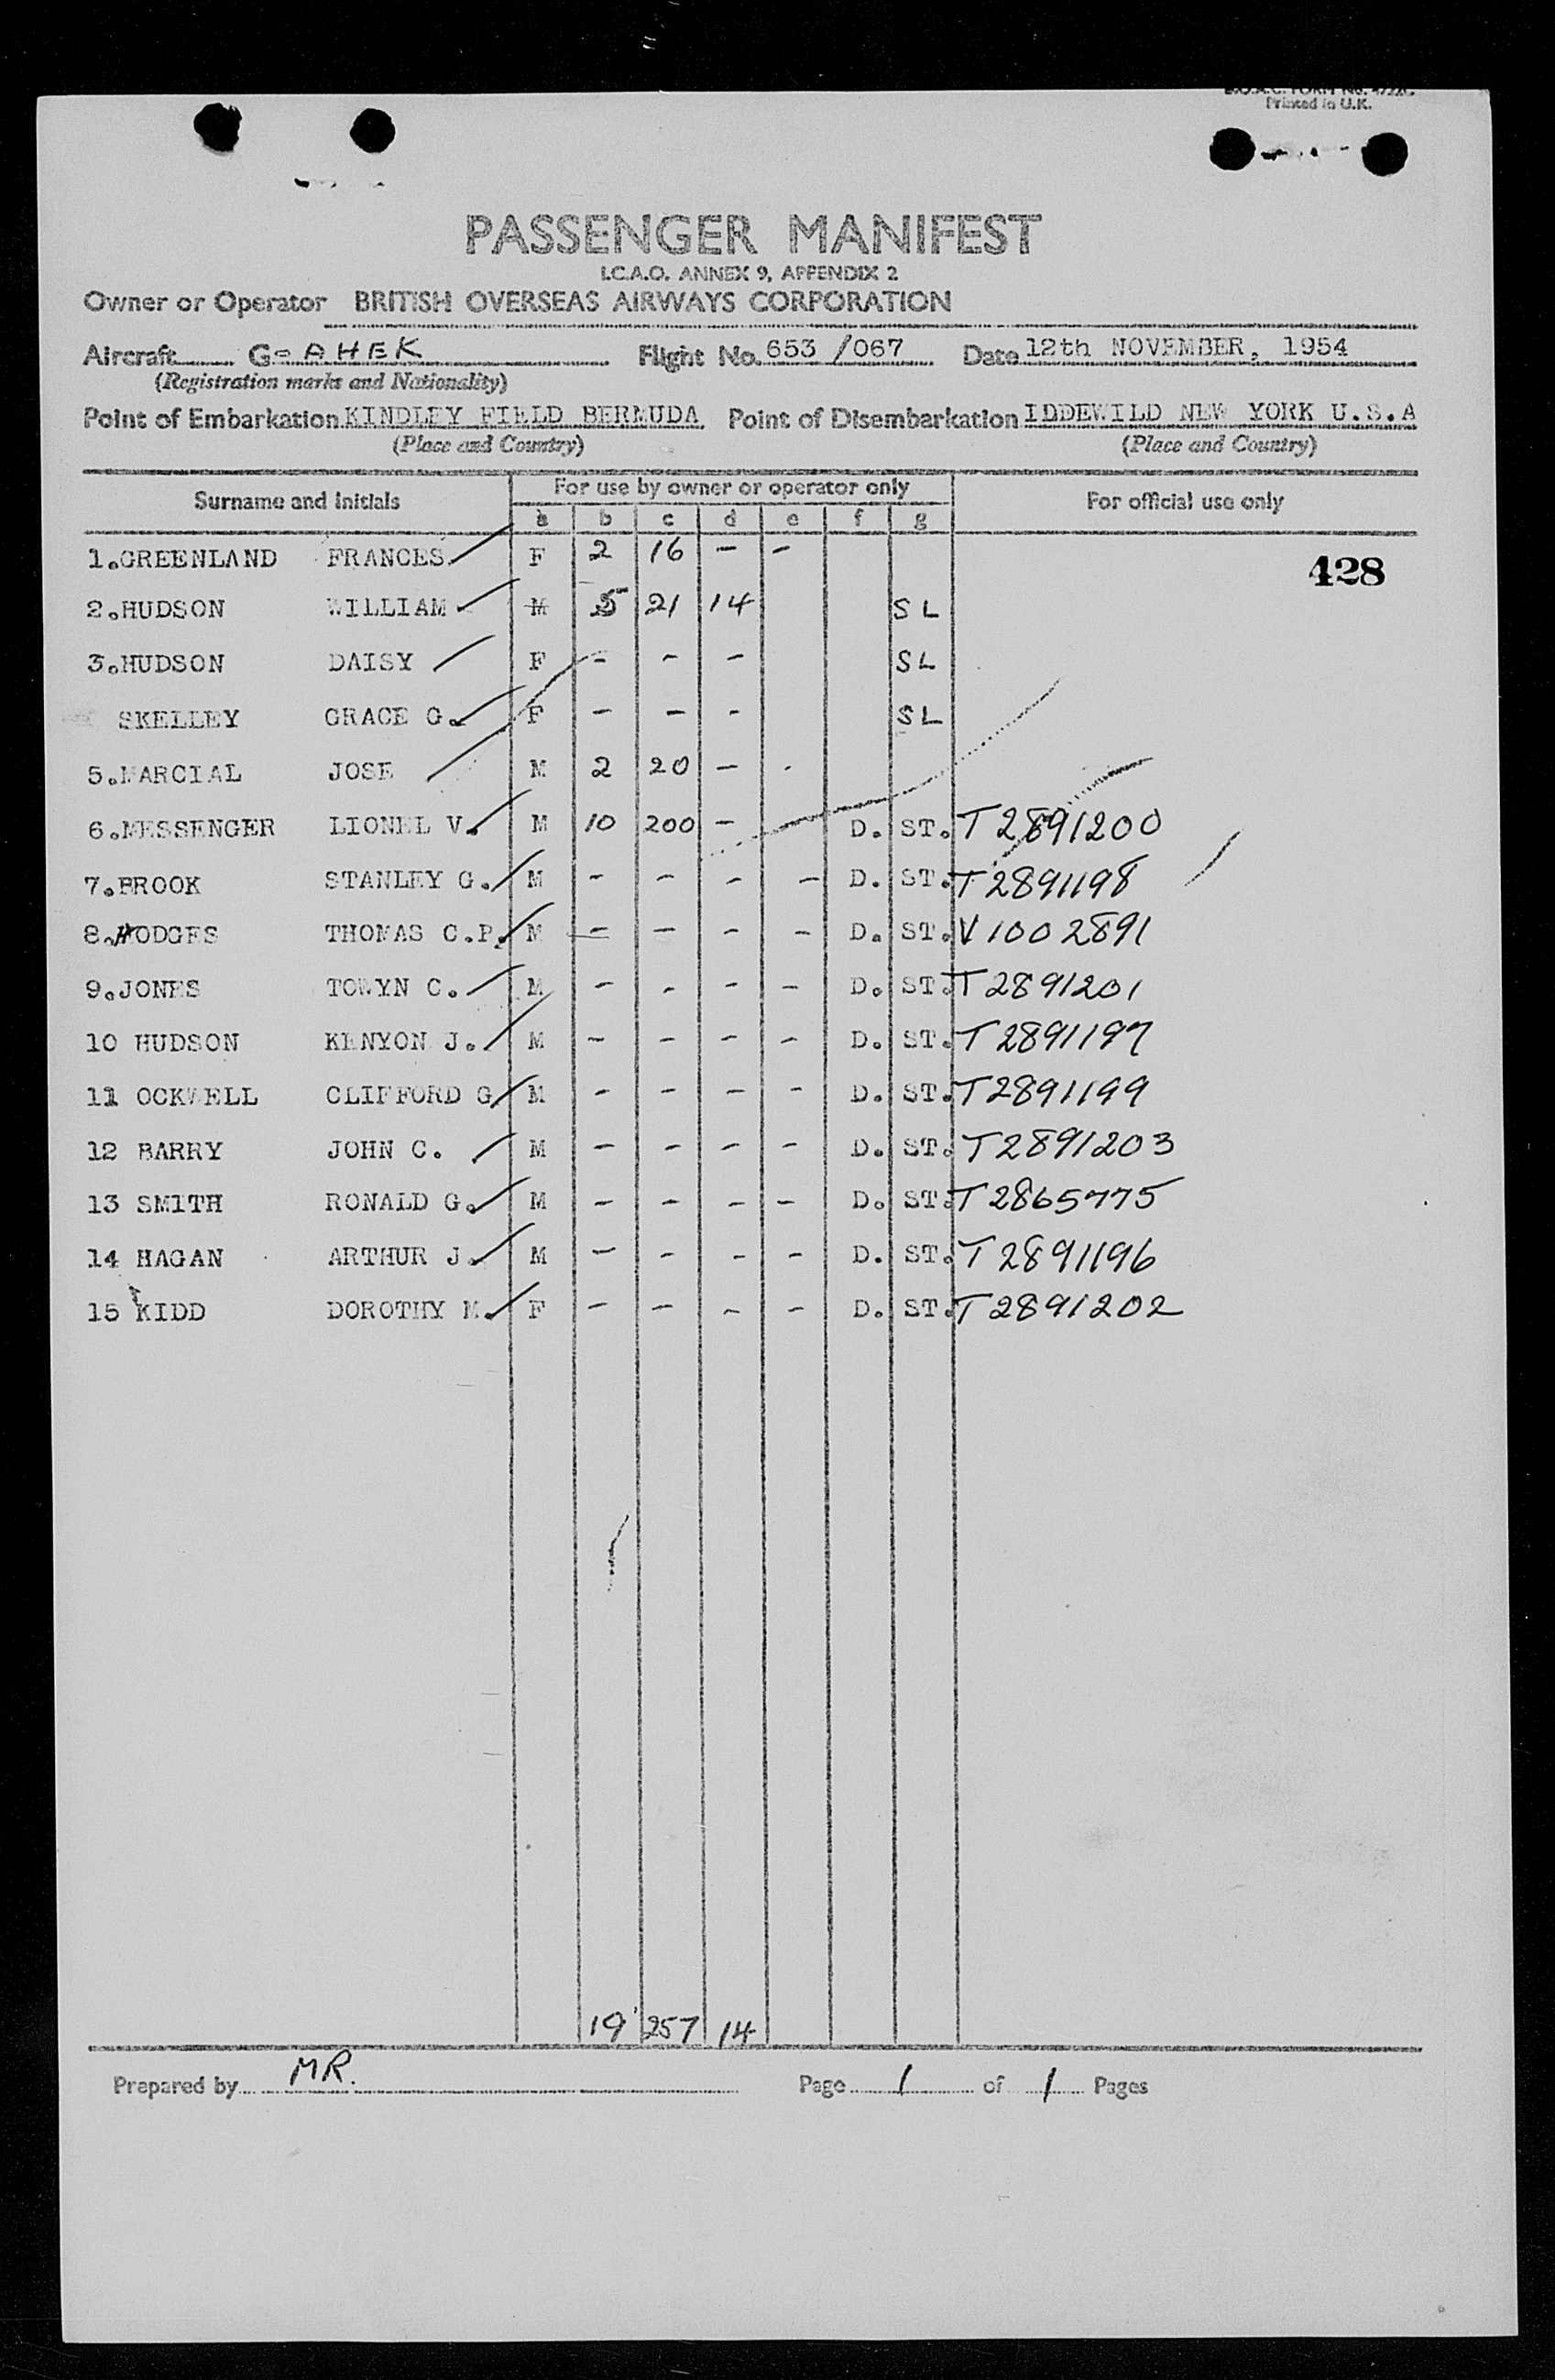 B.O.A.C. FORM No.
Printed in U.K.
PASSENGER MANIFEST
I.C.A.O. ANNEX 9, APPENDIX 2
Owner or Operator BRITISH OVERSEAS AIRWAYS CORPORATION
Aircraft G-AHEK Flight No. 653 /067 Date 12th NOVEMBER, 1954
(Registration marks and Nationality)
Point of Embarkation KINDLEY FIELD BERMUDA Point of Disembarkation IDDEWILD NEW YORK U.S.A
(Place and Country) (Place and Country)
Surname and Initials For use by owner or operator only For official use only
a b c d e f g
1.GREENLAND FRANCES F 2 16 - -
428
2.HUDSON WILLIAM M 5 21 14 SL
3.HUDSON DAISY F - - - SL
SKELLEY GRACE G. F - - - SL
5.MARCIAL JOSE M 2 20 - -
6.MESSENGER LIONEL V. M 10 200 - D. ST. T2891200
7.BROOK STANLEY G. M - - - - D. ST. T2891198
8.HODGES THOMAS C.P. M - - - - D. ST. V1002891
9.JONES TOWYN C. M - - - - D. ST. T2891201
10 HUDSON KENYON J. M - - - - D. ST. T2891197
11 OCKWELL CLIFFORD G M - - - - D. ST. T2891199
12 BARRY JOHN C. M - - - - D. ST. T2891203
13 SMITH RONALD G. M - - - - D. ST. T2865775
14 HAGAN ARTHUR J. M - - - - D. ST. T2891196
15 KIDD DOROTHY M. F - - - - D. ST. T2891202
19 257 14
Prepared by MR. Page 1 of 1 Pages